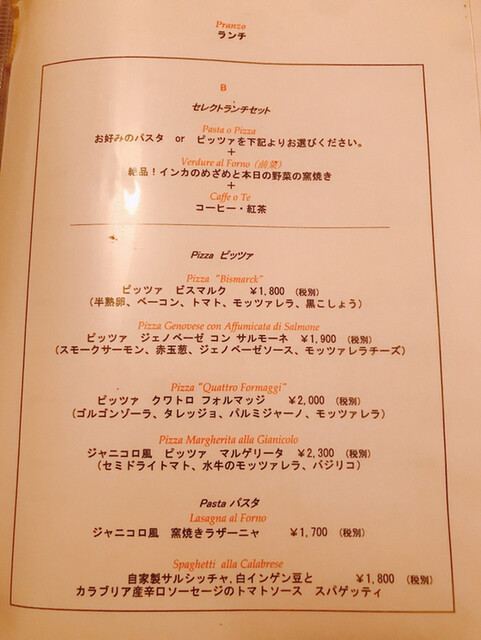 Pranzo
ランチ
B
セレクトランチセット
Pasta o Pizza
お好みのパスタ or ピッツァを下記よりお選びください。
+
Verdure al Forno (前菜)
絶品！インカのめざめと本日の野菜の窯焼き
+
Caffe o Te
コーヒー・紅茶
Pizza ピッツァ
Pizza "Bismarck"
ピッツァ ビスマルク ￥1,800 （税別）
（半熟卵、ベーコン、トマト、モッツァレラ、黒こしょう）
Pizza Genovese con Affumicata di Salmone
ピッツァ ジェノベーゼ コン サルモーネ ￥1,900 （税別）
（スモークサーモン、赤玉葱、ジェノベーゼソース、モッツァレラチーズ）
Pizza "Quattro Formaggi"
ピッツァ クワトロ フォルマッジ ￥2,000 （税別）
（ゴルゴンゾーラ、タレッジョ、パルミジャーノ、モッツァレラ）
Pizza Margherita alla Gianicolo
ジャニコロ風 ピッツァ マルゲリータ ￥2,300 （税別）
（セミドライトマト、水牛のモッツァレラ、バジリコ）
Pasta パスタ
Lasagna al Forno
ジャニコロ風 窯焼きラザーニャ ￥1,700 （税別）
Spaghetti alla Calabrese
自家製サルシッチャ,白インゲン豆と ￥1,800 （税別）
カラブリア産辛口ソーセージのトマトソース スパゲッティ